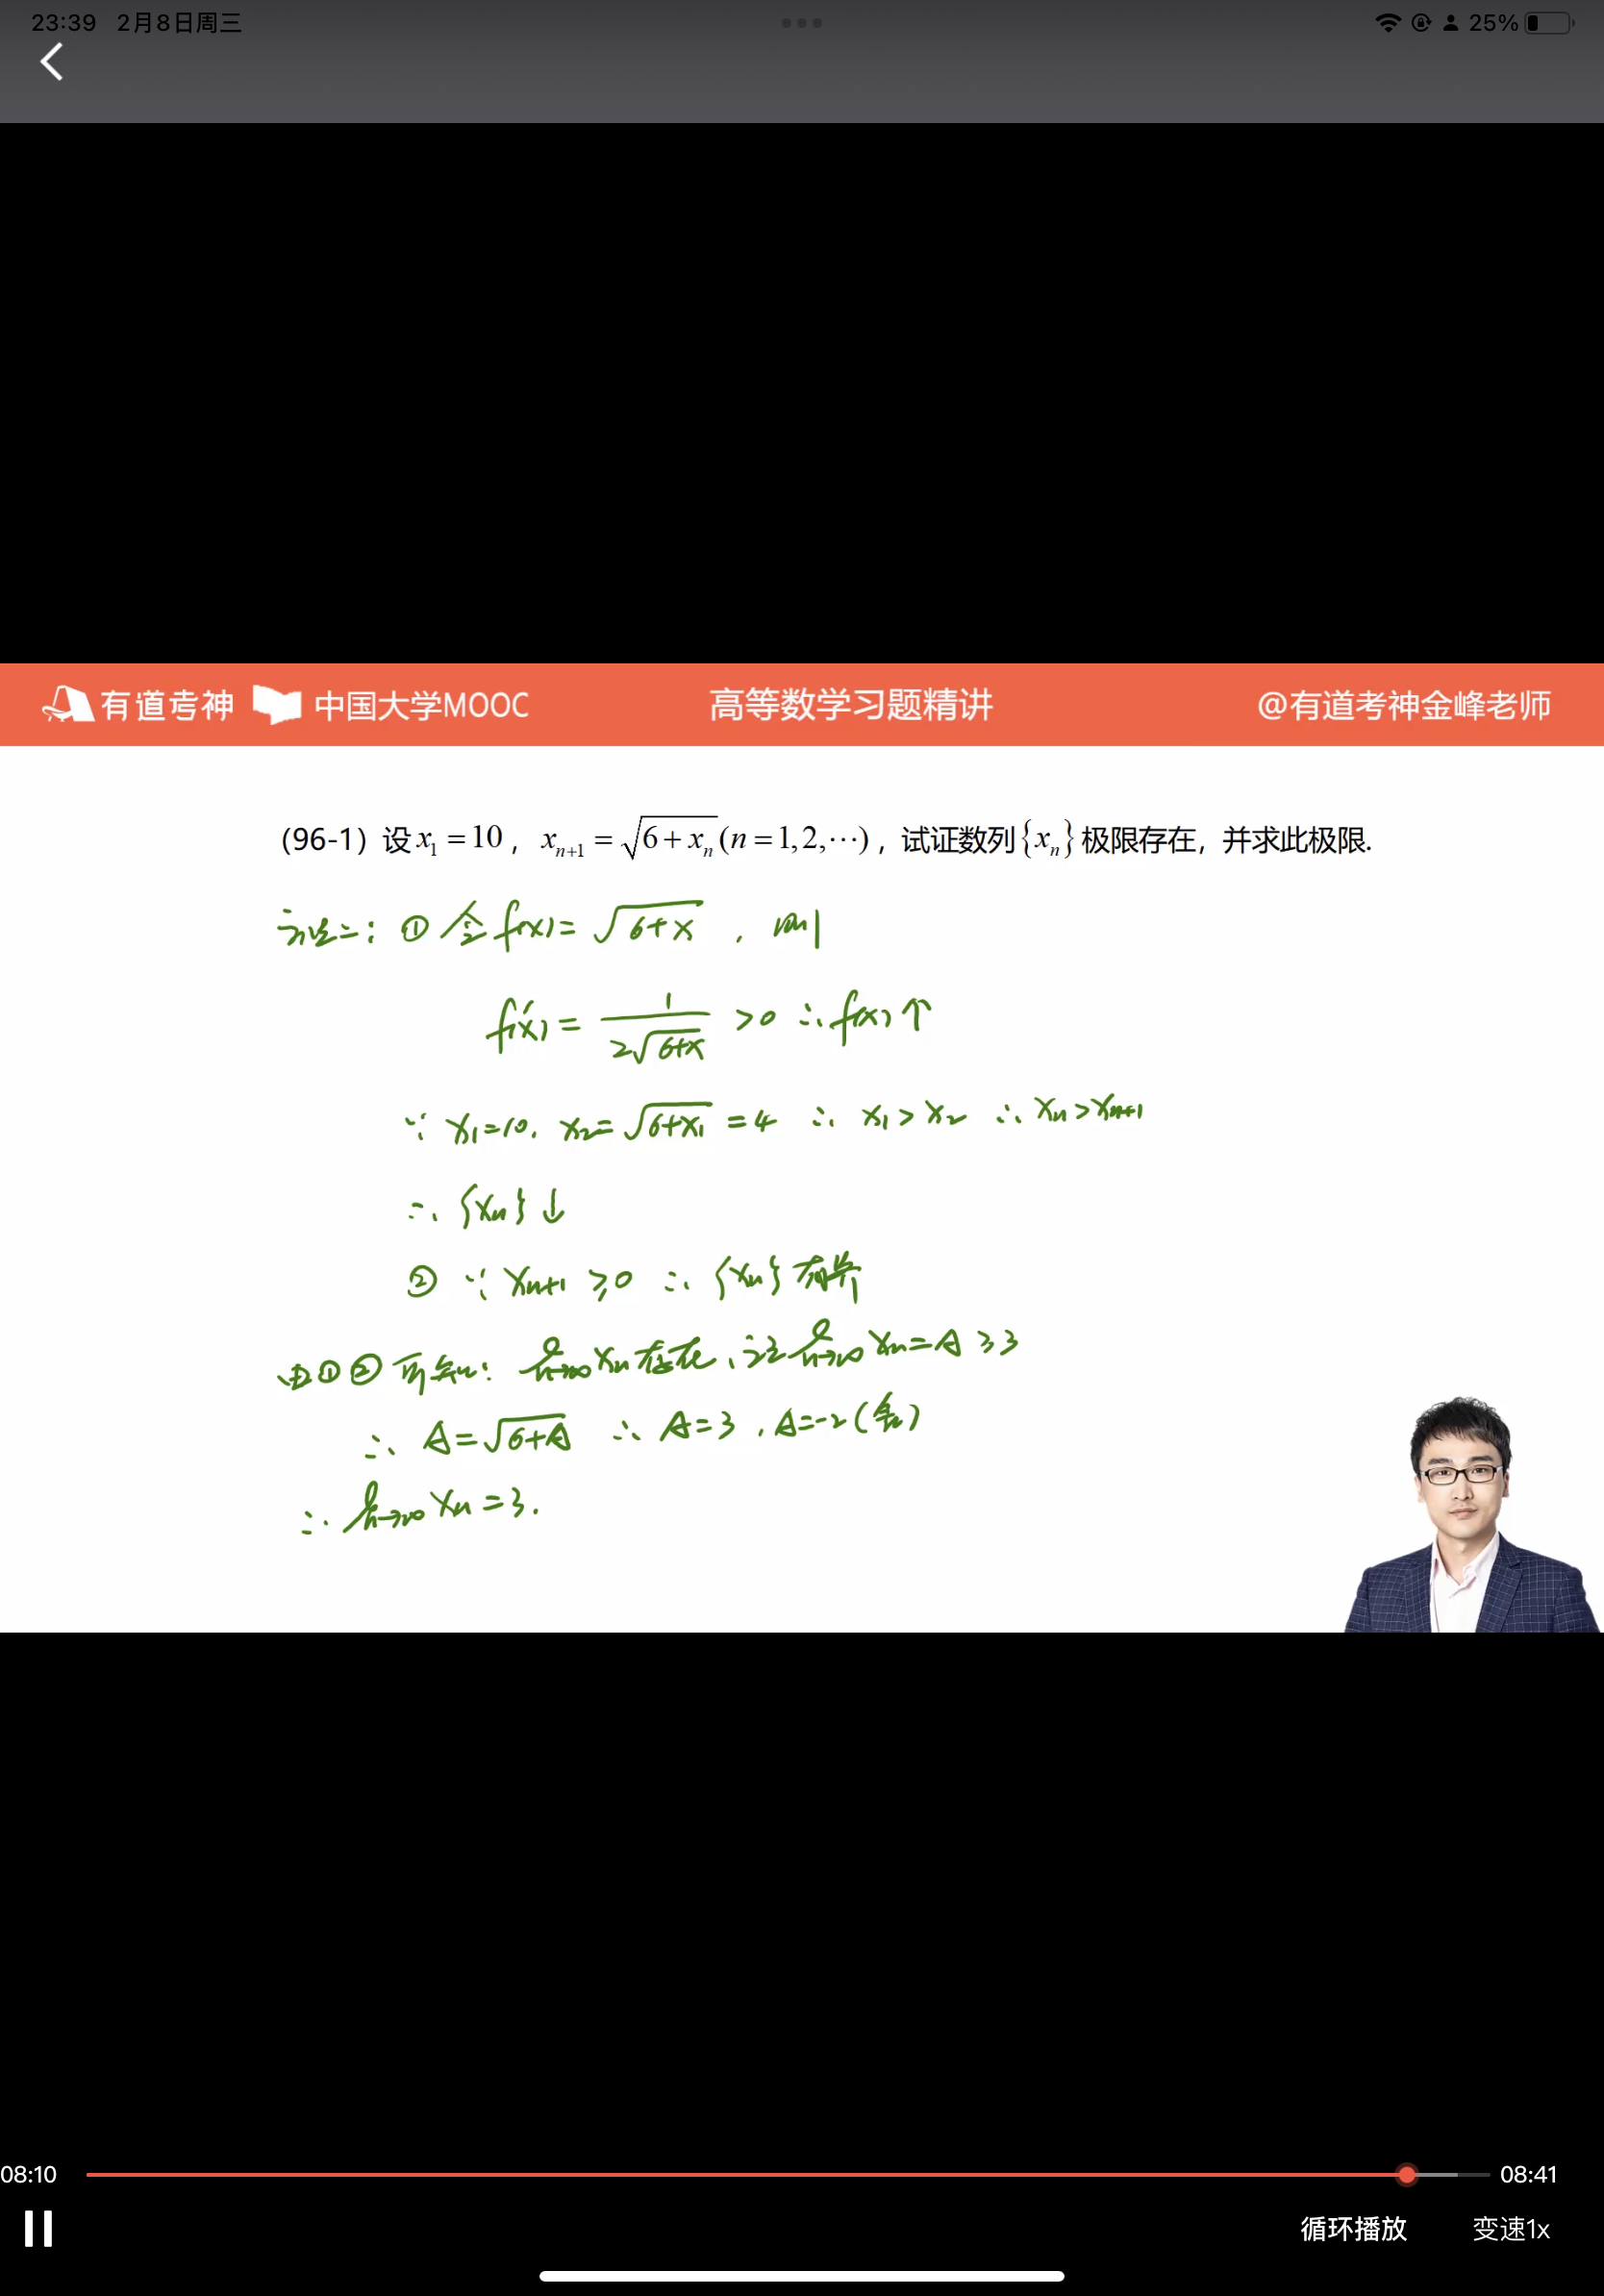 23:39 2月8日周三 25%
有道考神 中国大学MOOC 高等数学习题精讲 @有道考神金峰老师
(96-1) 设 x₁ = 10, xₙ₊₁ = √(6 + xₙ) (n = 1, 2, ⋯), 试证数列 {xₙ} 极限存在, 并求此极限.
方法二: ① 令 f(x) = √(6+x), 则
f'(x) = 1/(2√(6+x)) > 0 ∴ f(x)↑
∵ x₁ = 10. x₂ = √(6+x₁) = 4 ∴ x₁ > x₂ ∴ xₙ > xₙ₊₁
∴ {xₙ}↓
② ∵ xₙ₊₁ ≥ 0 ∴ {xₙ} 有下界
由①② 可知: lim n→∞ xₙ 存在, 设 lim n→∞ xₙ = A ≥ 3
∴ A = √(6+A) ∴ A = 3, A = -2 (舍)
∴ lim n→∞ xₙ = 3.
08:10 08:41
循环播放 变速1x